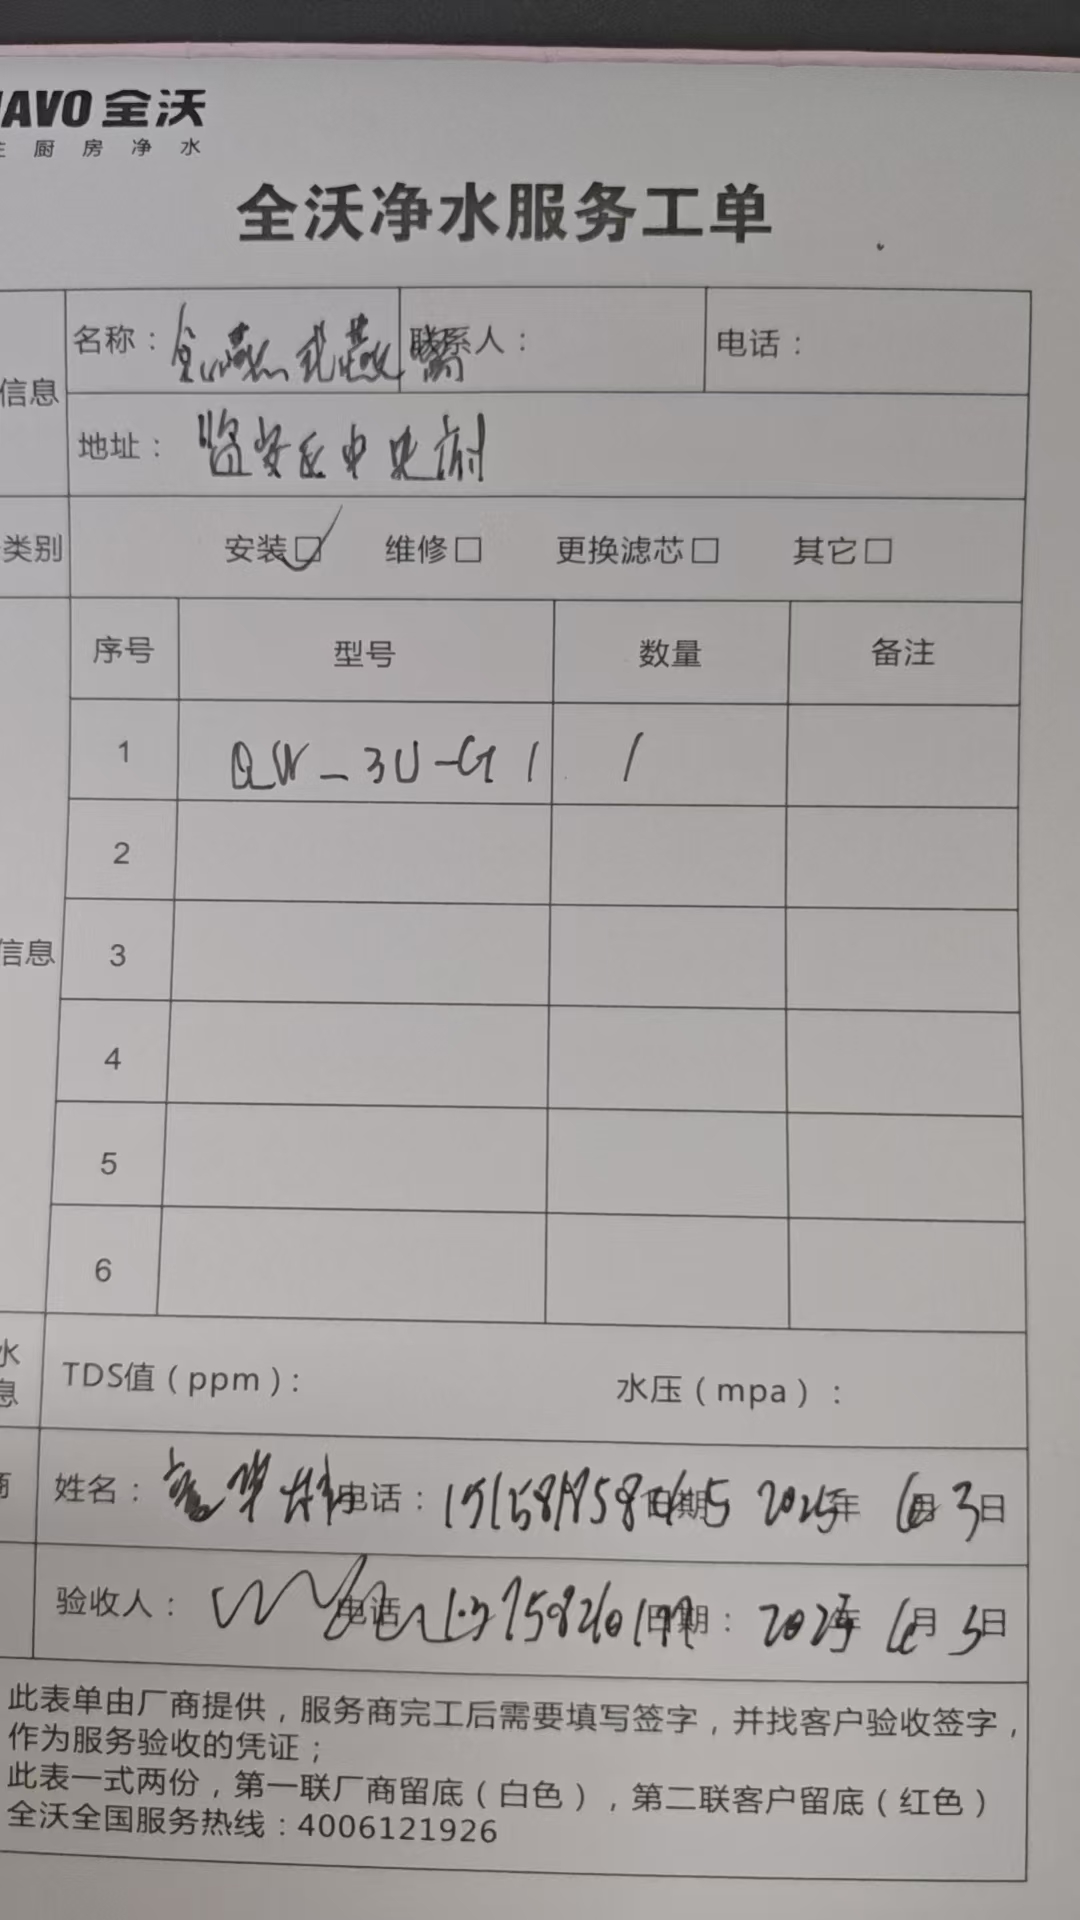 AVO 全沃
厨房净水
全沃净水服务工单
信息
名称： 联系人： 电话：
地址：
类别 安装□✓ 维修□ 更换滤芯□ 其它□
序号 型号 数量 备注
1 QW-3U-G1 1
2
信息 3
4
5
6
水息 TDS值（ppm）： 水压（mpa）：
姓名： 电话： 日期 2025年 6月 3日
验收人： 电话 日期： 2025年 6月 3日
此表单由厂商提供，服务商完工后需要填写签字，并找客户验收签字，
作为服务验收的凭证；
此表一式两份，第一联厂商留底（白色），第二联客户留底（红色）
全沃全国服务热线：4006121926